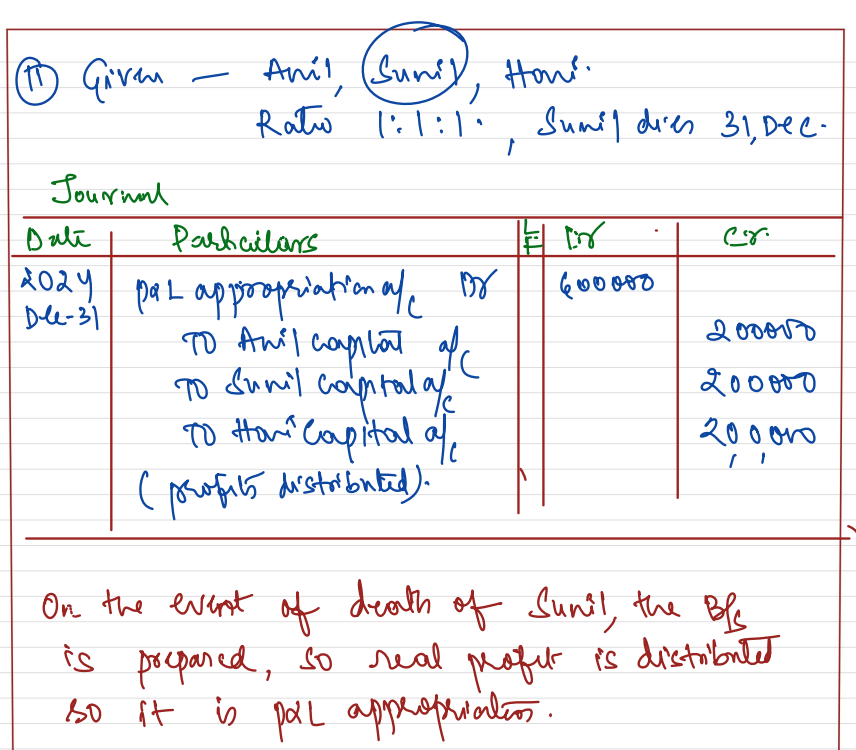 11 Given — Anil, Sunil, Hani.
Ratio 1:1:1. , Sunil dies 31, Dec.
Journal
Date Particulars LF Dr Cr.
2024 P&L appropriation a/c Dr 600000
Dec-31
To Anil capital a/c 200000
To Sunil capital a/c 200000
To Hani Capital a/c 200,000
(profits distributed).
On the event of death of Sunil, the B/s
is prepared, so real profit is distributed
so it is P&L appropriation.